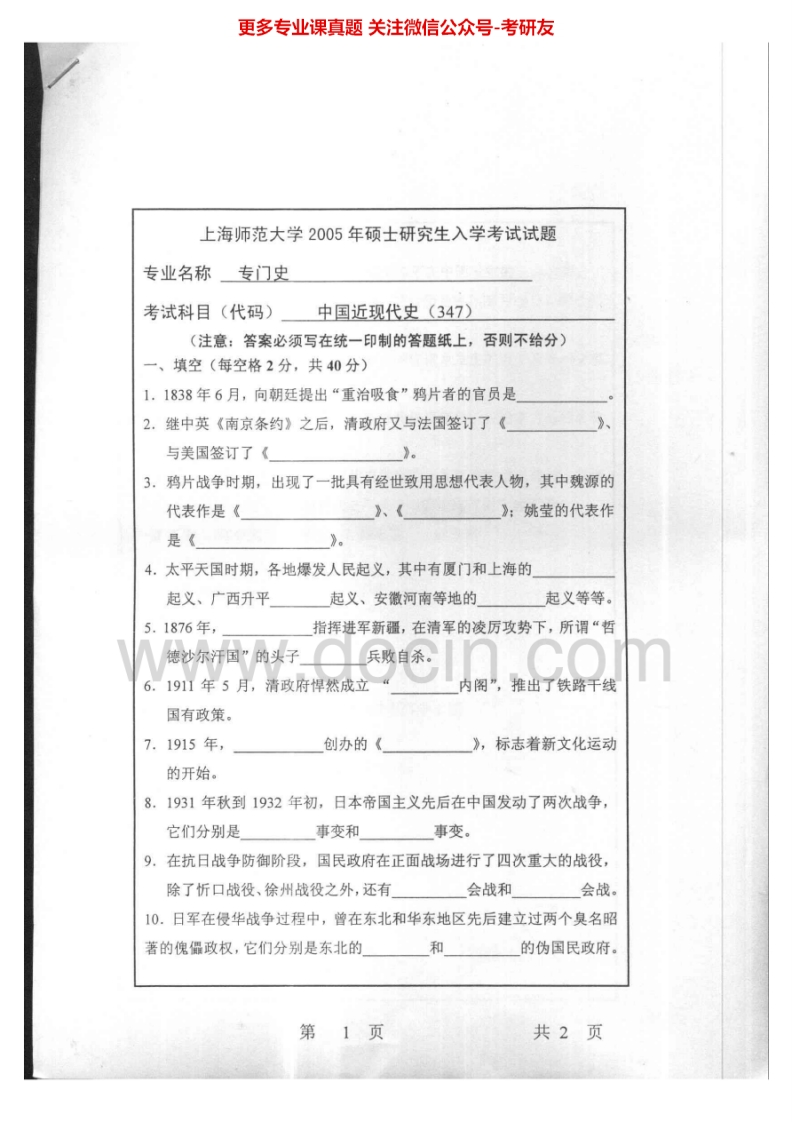 更多专业课真题 关注微信公众号-考研友
上海师范大学 2005 年硕士研究生入学考试试题
专业名称 专门史
考试科目（代码） 中国近现代史（347）
（注意：答案必须写在统一印制的答题纸上，否则不给分）
一、填空（每空格 2 分，共 40 分）
1．1838 年 6 月，向朝廷提出“重治吸食”鸦片者的官员是__________。
2．继中英《南京条约》之后，清政府又与法国签订了《__________》、
与美国签订了《______________》。
3．鸦片战争时期，出现了一批具有经世致用思想代表人物，其中魏源的
代表作是《______________》、《__________》；姚莹的代表作
是《______________》。
4．太平天国时期，各地爆发人民起义，其中有厦门和上海的_________
起义、广西升平_______起义、安徽河南等地的_______起义等等。
5．1876 年，__________指挥进军新疆，在清军的凌厉攻势下，所谓“哲
德沙尔汗国”的头子_______兵败自杀。
6．1911 年 5 月，清政府悍然成立 “_______内阁”，推出了铁路干线
国有政策。
7．1915 年，__________创办的《__________》，标志着新文化运动
的开始。
8．1931 年秋到 1932 年初，日本帝国主义先后在中国发动了两次战争，
它们分别是________事变和________事变。
9．在抗日战争防御阶段，国民政府在正面战场进行了四次重大的战役，
除了忻口战役、徐州战役之外，还有________会战和________会战。
10．日军在侵华战争过程中，曾在东北和华东地区先后建立过两个臭名昭
著的傀儡政权，它们分别是东北的_______和________的伪国民政府。
www.docin.com
第 1 页 共 2 页